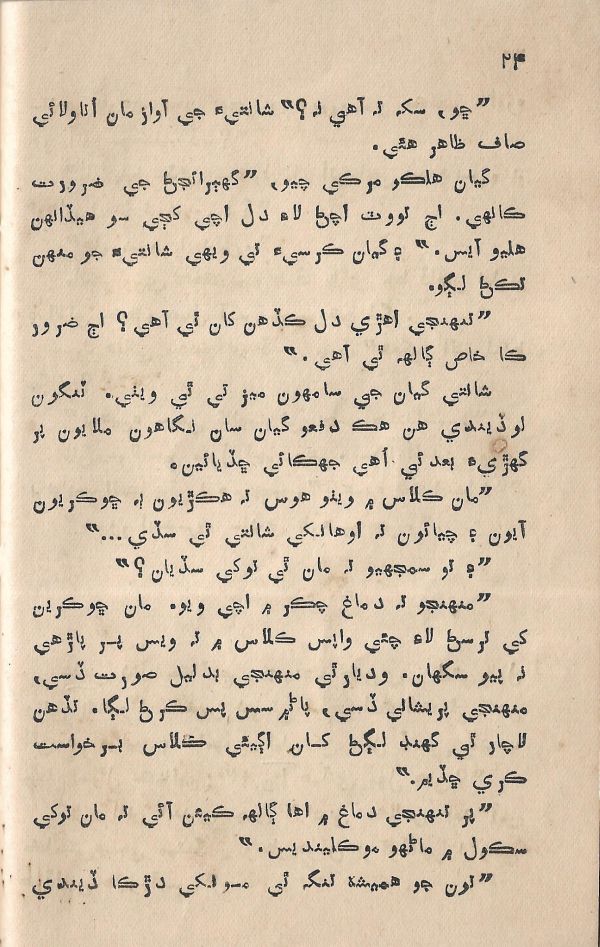 ۲۴
”ڇو، سک تہ آهي نہ؟“ شانتيءَ جي آواز مان اُتاولائي
صاف ظاهر هئي.
گيان هلڪو مرڪي چيو، ”گهبرائجڻ جي ضرورت
ڪانهي. اڄ تووٽ اچڻ لاءِ دل اچي ڪڇي سو هيڏانهن
هليو آيس.“ ۽ گيان ڪرسيءَ تي ويهي شانتيءَ جو منهن
تڪڻ لڳو.
”تنهنجي اهڙي دل ڪڏهن کان ٿي آهي؟ اڄ ضرور
ڪا خاص ڳالهہ ٿي آهي.“
شانتي گيان جي سامهون ميز تي ٿي ويٺي. ٽنگون
لوڏيندي هن هڪ دفعو گيان سان نگاهون ملايون پر
گهڙيءَ بعد ئي اُهي جهڪائي ڇڏيائين.
”مان ڪلاس ۾ ويٺو هوس تہ هڪڙيون ٻہ ڇوڪريون
آيون ۽ چيائون تہ اوهانکي شانتي ٿي سڏي...“
”۽ تو سمجهيو تہ مان ٿي توکي سڏيان؟“
”منهنجو تہ دماغ چڪر ۾ اچي ويو. مان ڇوڪرين
کي ترسڻ لاءِ چئي واپس ڪلاس ۾ تہ ويس پر پاڙهي
نہ پيو سگهان. وديارٿي منهنجي بدليل صورت ڏسي،
منهنجي پريشاني ڏسي، پاڻ۾ سس پس ڪرڻ لڳا. تڏهن
لاچار ٿي گهنڊ لڳڻ کان اڳيئي ڪلاس برخواست
ڪري ڇڏيم.“
”پر تنهنجي دماغ ۾ اها ڳالهہ ڪيئن آئي تہ مان توکي
سکول ۾ ماڻهو موڪلينديس.“
”تون جو هميشہ تنگ ٿي مونکي دڙڪا ڏيندي